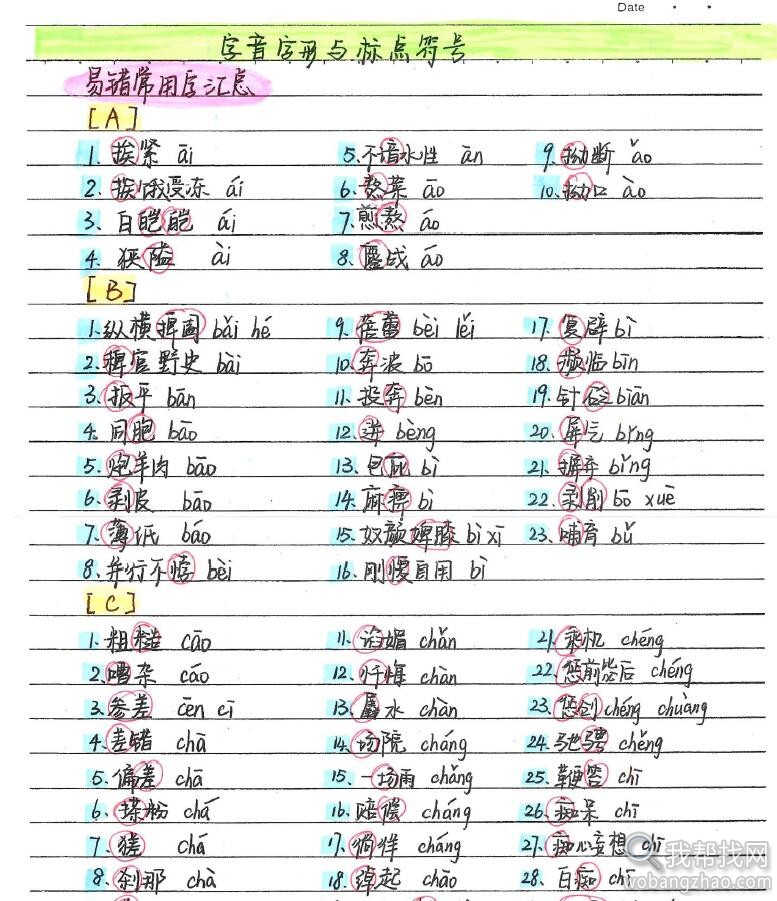 Date
字音字形与标点符号
易错常用字汇总
[A]
1. 挨紧 āi 5. 不谙水性 ān 9. 拗断 ǎo
2. 挨饿受冻 ái 6. 熬菜 āo 10. 拗口 ào
3. 白皑皑 ái 7. 煎熬 áo
4. 狭隘 ài 8. 鏖战 áo
[B]
1. 纵横捭阖 bǎi hé 9. 蓓蕾 bèi lěi 17. 复辟 bì
2. 稗官野史 bài 10. 奔波 bō 18. 濒临 bīn
3. 扳平 bān 11. 投奔 bèn 19. 针砭 biān
4. 同胞 bāo 12. 迸 bèng 20. 屏气 bǐng
5. 炮羊肉 bāo 13. 包庇 bì 21. 摒弃 bǐng
6. 剥皮 bāo 14. 麻痹 bì 22. 剥削 bō xuē
7. 薄纸 báo 15. 奴颜婢膝 bì xī 23. 哺育 bǔ
8. 并行不悖 bèi 16. 刚愎自用 bì
[C]
1. 粗糙 cāo 11. 谄媚 chǎn 21. 乘机 chéng
2. 嘈杂 cáo 12. 忏悔 chàn 22. 惩前毖后 chéng
3. 参差 cēn cī 13. 羼水 chàn 23. 惩创 chéng chuàng
4. 差错 chā 14. 场院 cháng 24. 驰骋 chěng
5. 偏差 chā 15. 一场雨 cháng 25. 鞭笞 chī
6. 搽粉 chá 16. 赔偿 cháng 26. 痴呆 chī
7. 猹 chá 17. 徜徉 cháng 27. 痴心妄想 chī
8. 刹那 chà 18. 绰起 chāo 28. 白痴 chī
我帮找网
wobangzhao.com